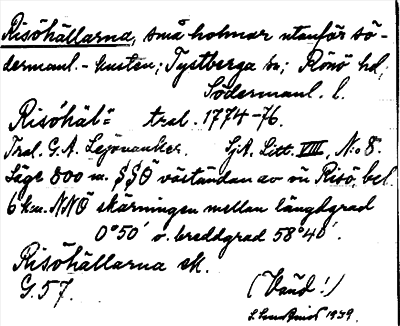 Risöhällarna, små holmar utanför sö-
dermanl.-kusten; Tystberga sn; Rönö hd,
Södermanl. l.
Risöhäl⸗ tral. 1774-76.
Tral. G.A. Lejonanker. SjA. Litt. VIII, N:o 8.
Läge 800 m. SSÖ väständan av ön Risö, bel.
6 km. NNÖ skärningen mellan längdgrad
0°50' o. breddgrad 58°40'.
Risöhällarna sk.
G. 57.
(Vänd!)
1939.